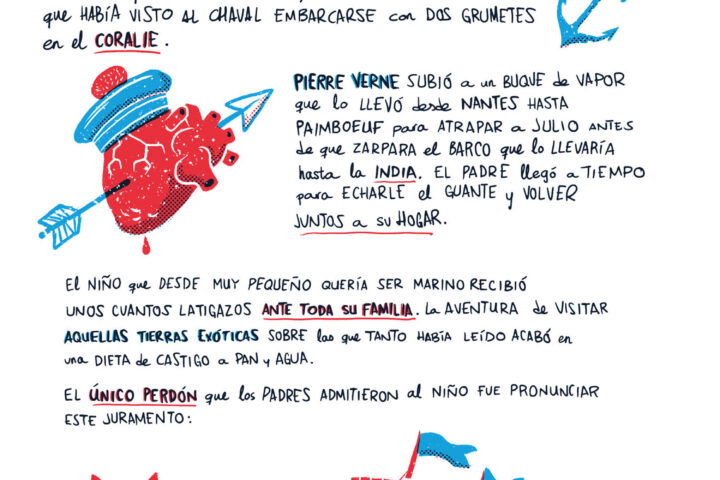 que HABÍA VISTO AL CHAVAL EMBARCARSE con DOS GRUMETES
en el CORALIE.
PIERRE VERNE SUBIÓ a un BUQUE de VAPOR
que lo LLEVÓ desde NANTES HASTA
PAIMBOEUF para ATRAPAR a JULIO ANTES
de que ZARPARA el BARCO que lo LLEVARÍA
hasta la INDIA. EL PADRE llegó a TIEMPO
para ECHARLE el GUANTE y VOLVER
JUNTOS a su HOGAR.
El NIÑO que DESDE MUY PEQUEÑO QUERÍA SER MARINO RECIBIÓ
UNOS CUANTOS LATIGAZOS ANTE TODA SU FAMILIA. La AVENTURA de VISITAR
AQUELLAS TIERRAS EXÓTICAS SOBRE las que TANTO HABÍA LEÍDO ACABÓ en
una DIETA de CASTIGO a PAN y AGUA.
EL ÚNICO PERDÓN que los PADRES ADMITIERON al NIÑO FUE PRONUNCIAR
ESTE JURAMENTO: